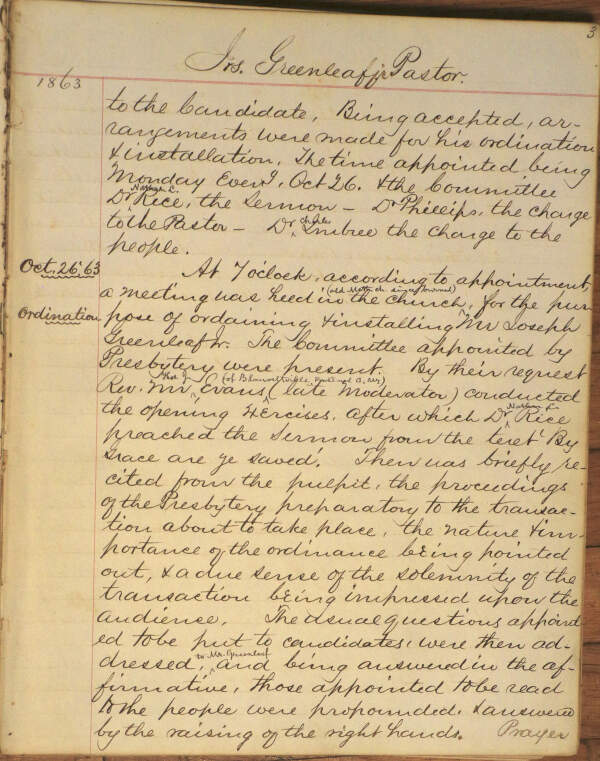 3
Jos. Greenleaf jr Pastor.
1863
to the Candidate. Being accepted, ar-
rangements were made for his ordination
& installation. The time appointed being
Monday Eveg, Oct 26. & the Committee
Nathan L.
Dr Rice, the Sermon – Dr Phillips, the charge
Charles
to the Pastor – Dr Imbree the charge to the
people.
Oct. 26 '63
At 7 o'clock, according to appointment,
a meeting was heed in the church, for the pur-
Ordination
pose of ordaining & installing Mr Joseph
Greenleaf Jr. The Committee appointed by
Presbytery were present. By their request
Rev. Mr Evans (late Moderator) conducted
Nathan L.
the opening Exercises. After which Dr Rice
preached the Sermon from the text 'By
Grace are ye saved'. Then was briefly re-
cited from the pulpit, the proceedings
of the Presbytery preparatory to the transac-
tion about to take place. the nature & im-
portance of the ordinance being pointed
out, & a due sense of the solemnity of the
transaction being impressed upon the
audience. The usual questions appoint
ed to be put to candidates, were then ad-
to Mr. Greenleaf
dressed, and being answered in the af-
firmative, those appointed to be read
to the people were propounded. & answered
by the raising of the right hands. Prayer